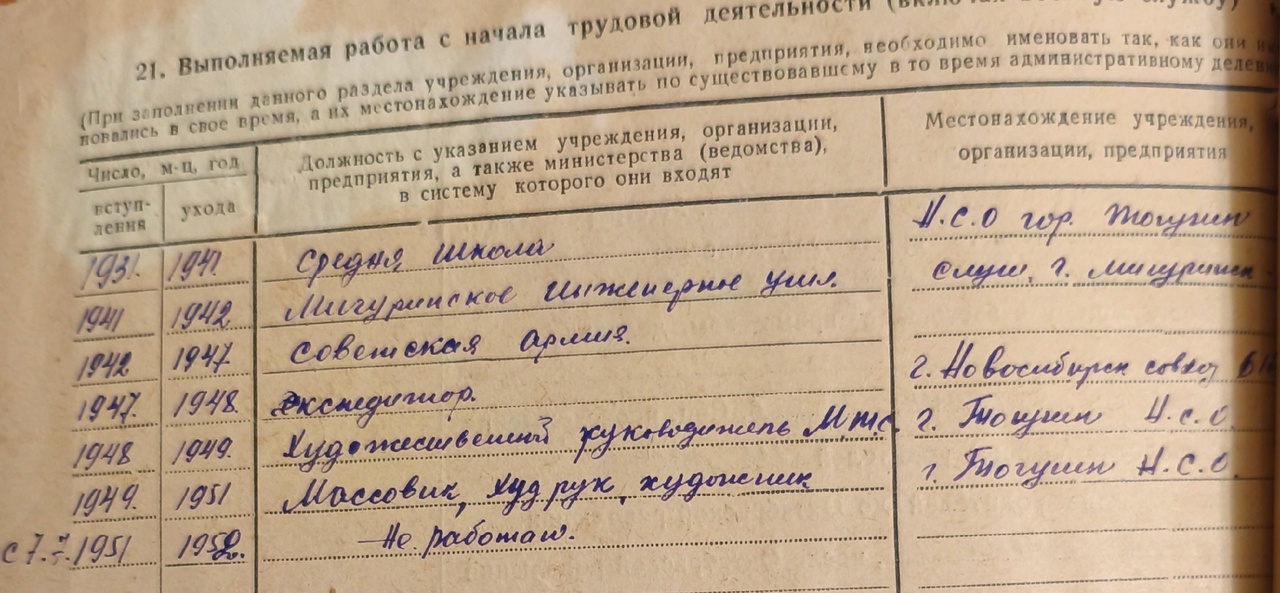 21. Выполняемая работа с начала трудовой деятельности
(При заполнении данного раздела учреждения, организации, предприятия, необходимо именовать так, как они
новались в свое время, а их местонахождение указывать по существовавшему в то время административному делен
Число, м-ц, год
вступ-
ления
ухода
Должность с указанием учреждения, организации,
предприятия, а также министерства (ведомства),
в систему которого они входят
Местонахождение учреждения,
организации, предприятия
1931. 1941. Средня школа Н.С.О гор. Тогучин
1941 1942 Мичуринское инженерное учил. слуш. г. Мичуринск
1942 1947 Советская армия.
1947. 1948. Экспедитор. г. Новосибирск совхоз
1948 1949. Художественный руководитель М.т.с. г. Тогучин Н.С.О.
1949. 1951 Массовик, худ рук, художник г. Тогучин Н.С.О.
с 7.7. 1951 1952. Не работал.